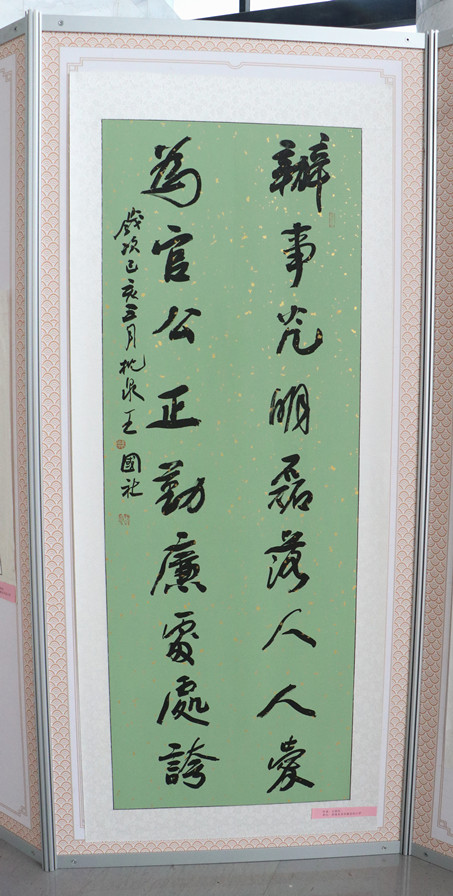 辦事光明磊落人人愛
為官公正勤廉處處誇
歲次己亥五月 王國社